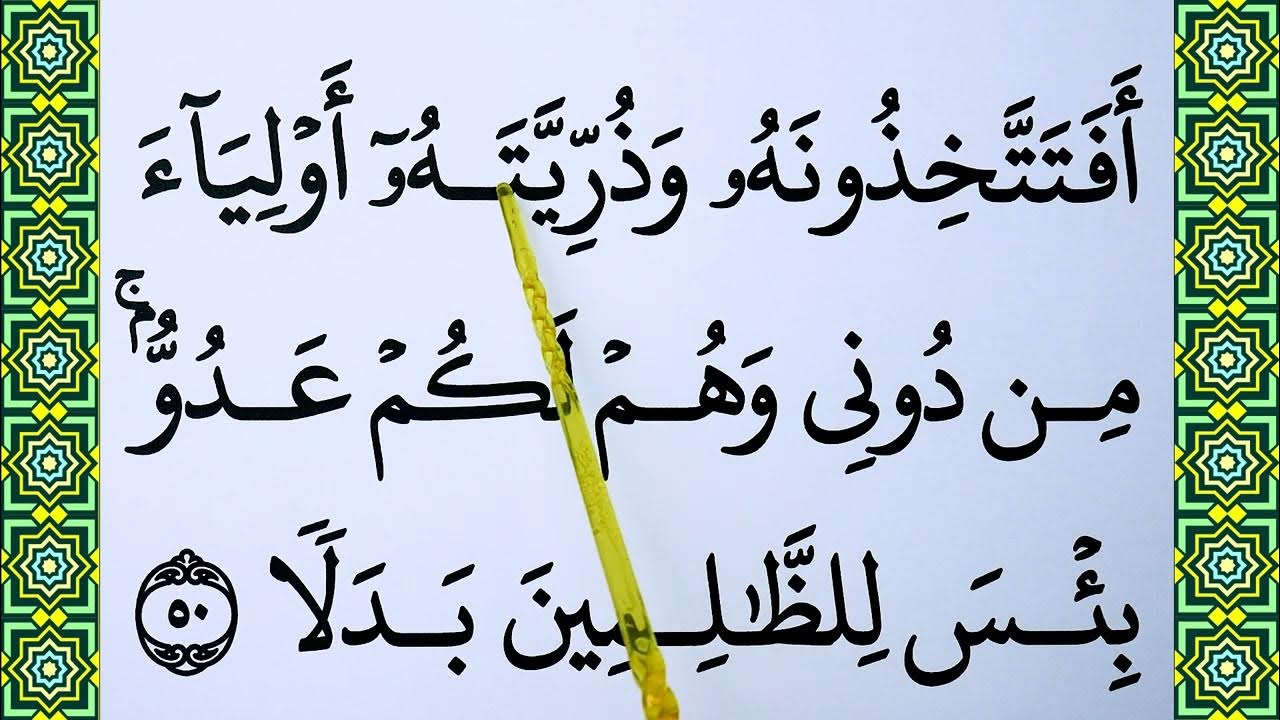 أَفَتَتَّخِذُونَهُۥ وَذُرِّيَّتَهُۥٓ أَوۡلِيَآءَ
مِن دُونِي وَهُمۡ لَكُمۡ عَدُوُّۢۚ
بِئۡسَ لِلظَّٰلِمِينَ بَدَلًا ٥٠